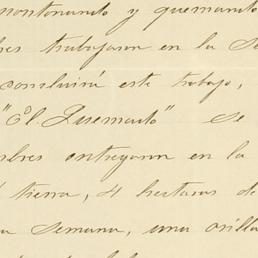 montonando y quemando
bres trabajaron en la Se
concluirá este trabajo,
"El Quemado" se
mbres entregaron en la
tierra, 4 hectaras de
a semana, una orilla